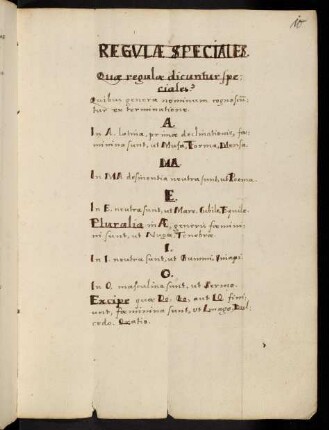 10
REGULÆ SPECIALES.
Quæ regulæ dicuntur spe-
ciales?
Quibus genera nominum cognoscun-
tur ex terminatione.
A.
In A. latina, primæ declinationis, fœ-
minina sunt, ut Musa, Forma, Mensa.
MA.
In MA desinentia neutra sunt, ut Poema.
E.
In E. neutra sunt, ut Mare, Cubile, Equile.
Pluralia in Æ, generis fœmini-
ni sunt, ut Nugæ, Tenebræ.
I.
In I. neutra sunt, ut Gummi, Sinapi.
O.
In O. masculina sunt, ut Sermo.
Excipe quæ Do, Go, aut IO. fini-
unt, fœminina sunt, ut Imago, Dul-
cedo, Oratio.